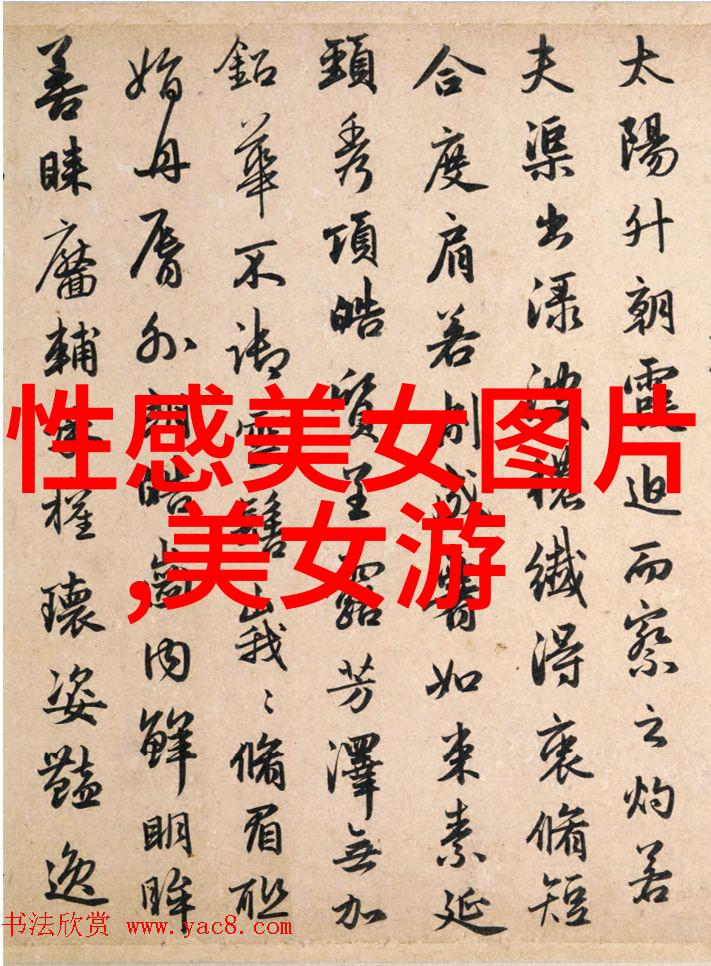 太陽升朝霞迫而察之灼若
夫渠出渌波穠纖得衷脩短
合度肩若削成如束素延
頸秀項皓質呈露芳澤無加
鉛華不御雲髻峩〻脩眉聯
娟丹脣外朗皓齒内鮮明眸
善睞靨輔承權瓌姿豔逸
性感美女图片
,美女游
书法欣赏 www.yac8.com